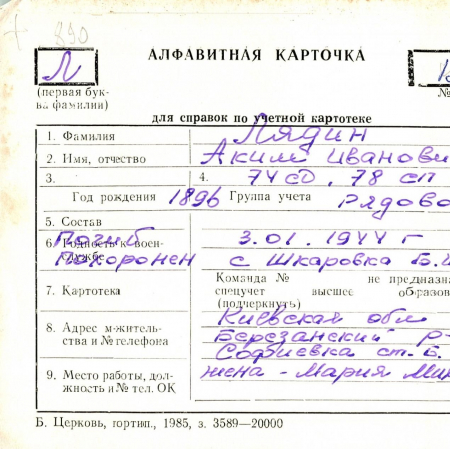 890
АЛФАВИТНАЯ КАРТОЧКА
Л
(первая бук-
ва фамилии)
№
для справок по учетной картотеке
1. Фамилия Лядин
2. Имя, отчество Аким Иванови
3. 4. 74 сд, 78 сп
Год рождения 1896 Группа учета рядово
5. Состав
6. Годность к воен-
ной службе
Погиб 3.01.1944 г
Похоронен с Шкаровка Б.
Команда № не предназна
7. Картотека спецучет высшее образов
(подчеркнуть)
Киевская обл
8. Адрес м-житель-
ства и № телефона
Березанский р-
Софиевка ст. Б.
9. Место работы, дол-
жность и № тел. ОК
жена - Мария
Б. Церковь, гортип., 1985, з. 3589—20000